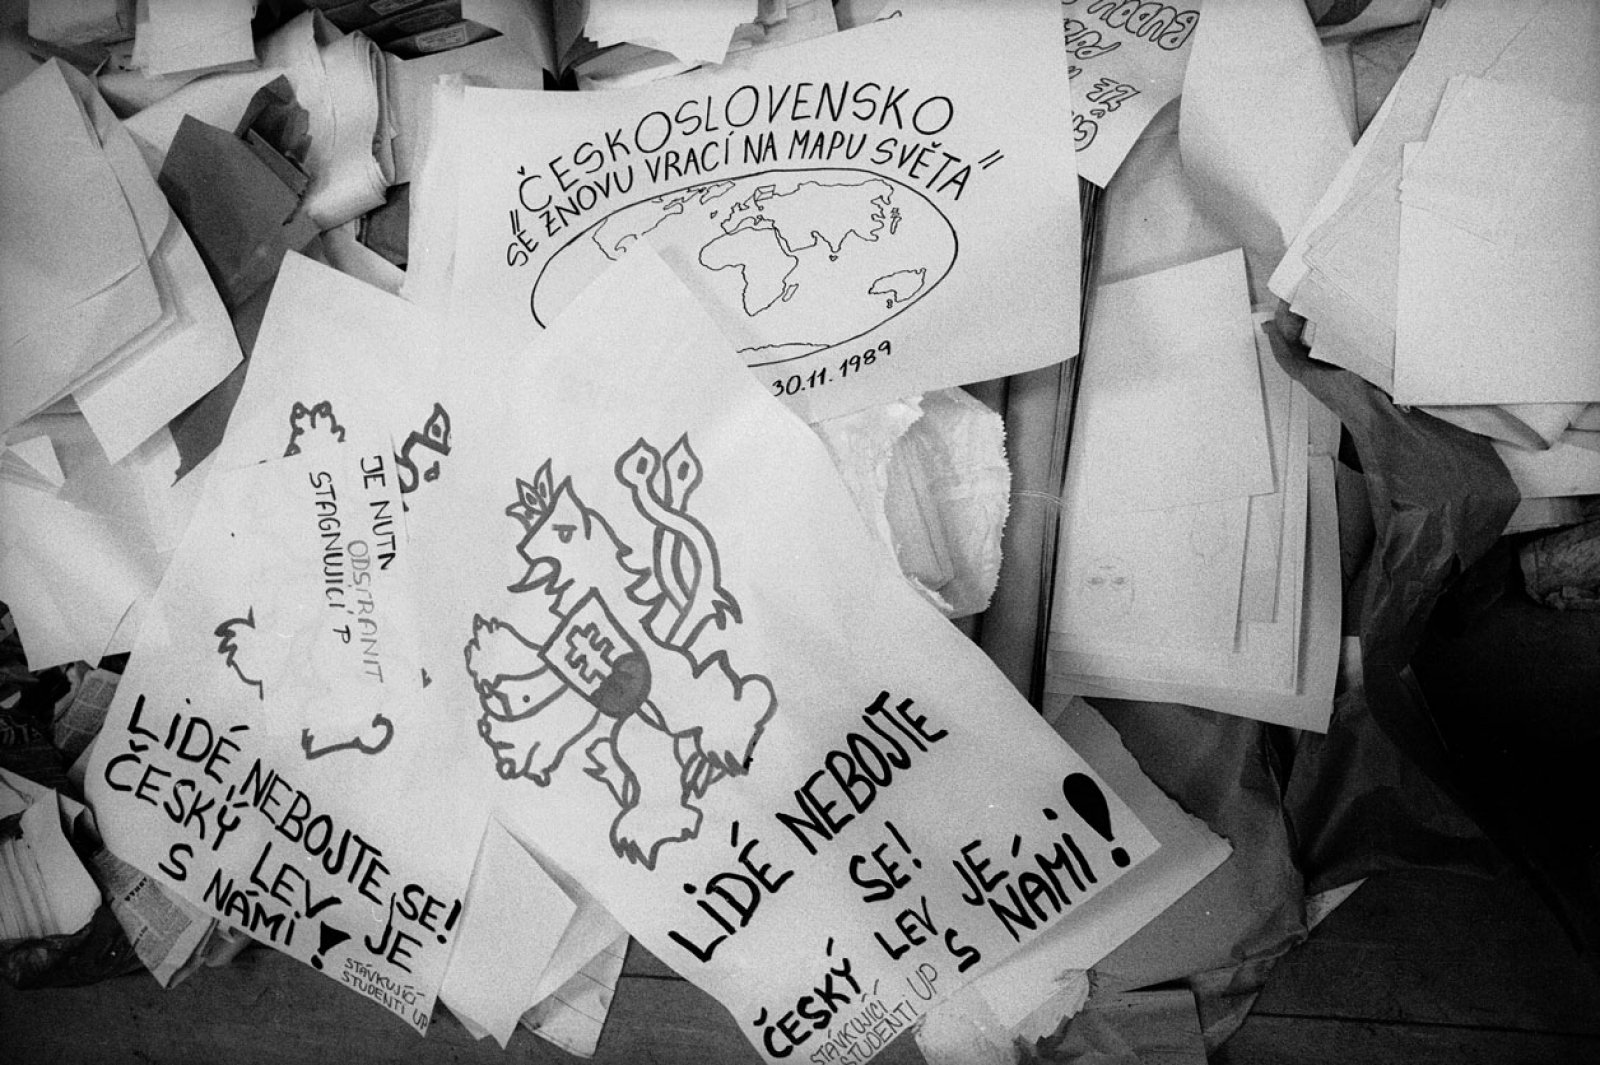 "ČESKOSLOVENSKO
SE ZNOVU VRACÍ NA MAPU SVĚTA"
30.11.1989
JE NUTN
ODSTRANIT
STAGNUJÍCÍ P
LIDÉ NEBOJTE SE!
ČESKÝ LEV JE
S NÁMI!
STÁVKUJÍCÍ
STUDENTI UP
LIDÉ NEBOJTE
SE!
ČESKÝ LEV JE
S NÁMI!
STÁVKUJÍCÍ
STUDENTI UP